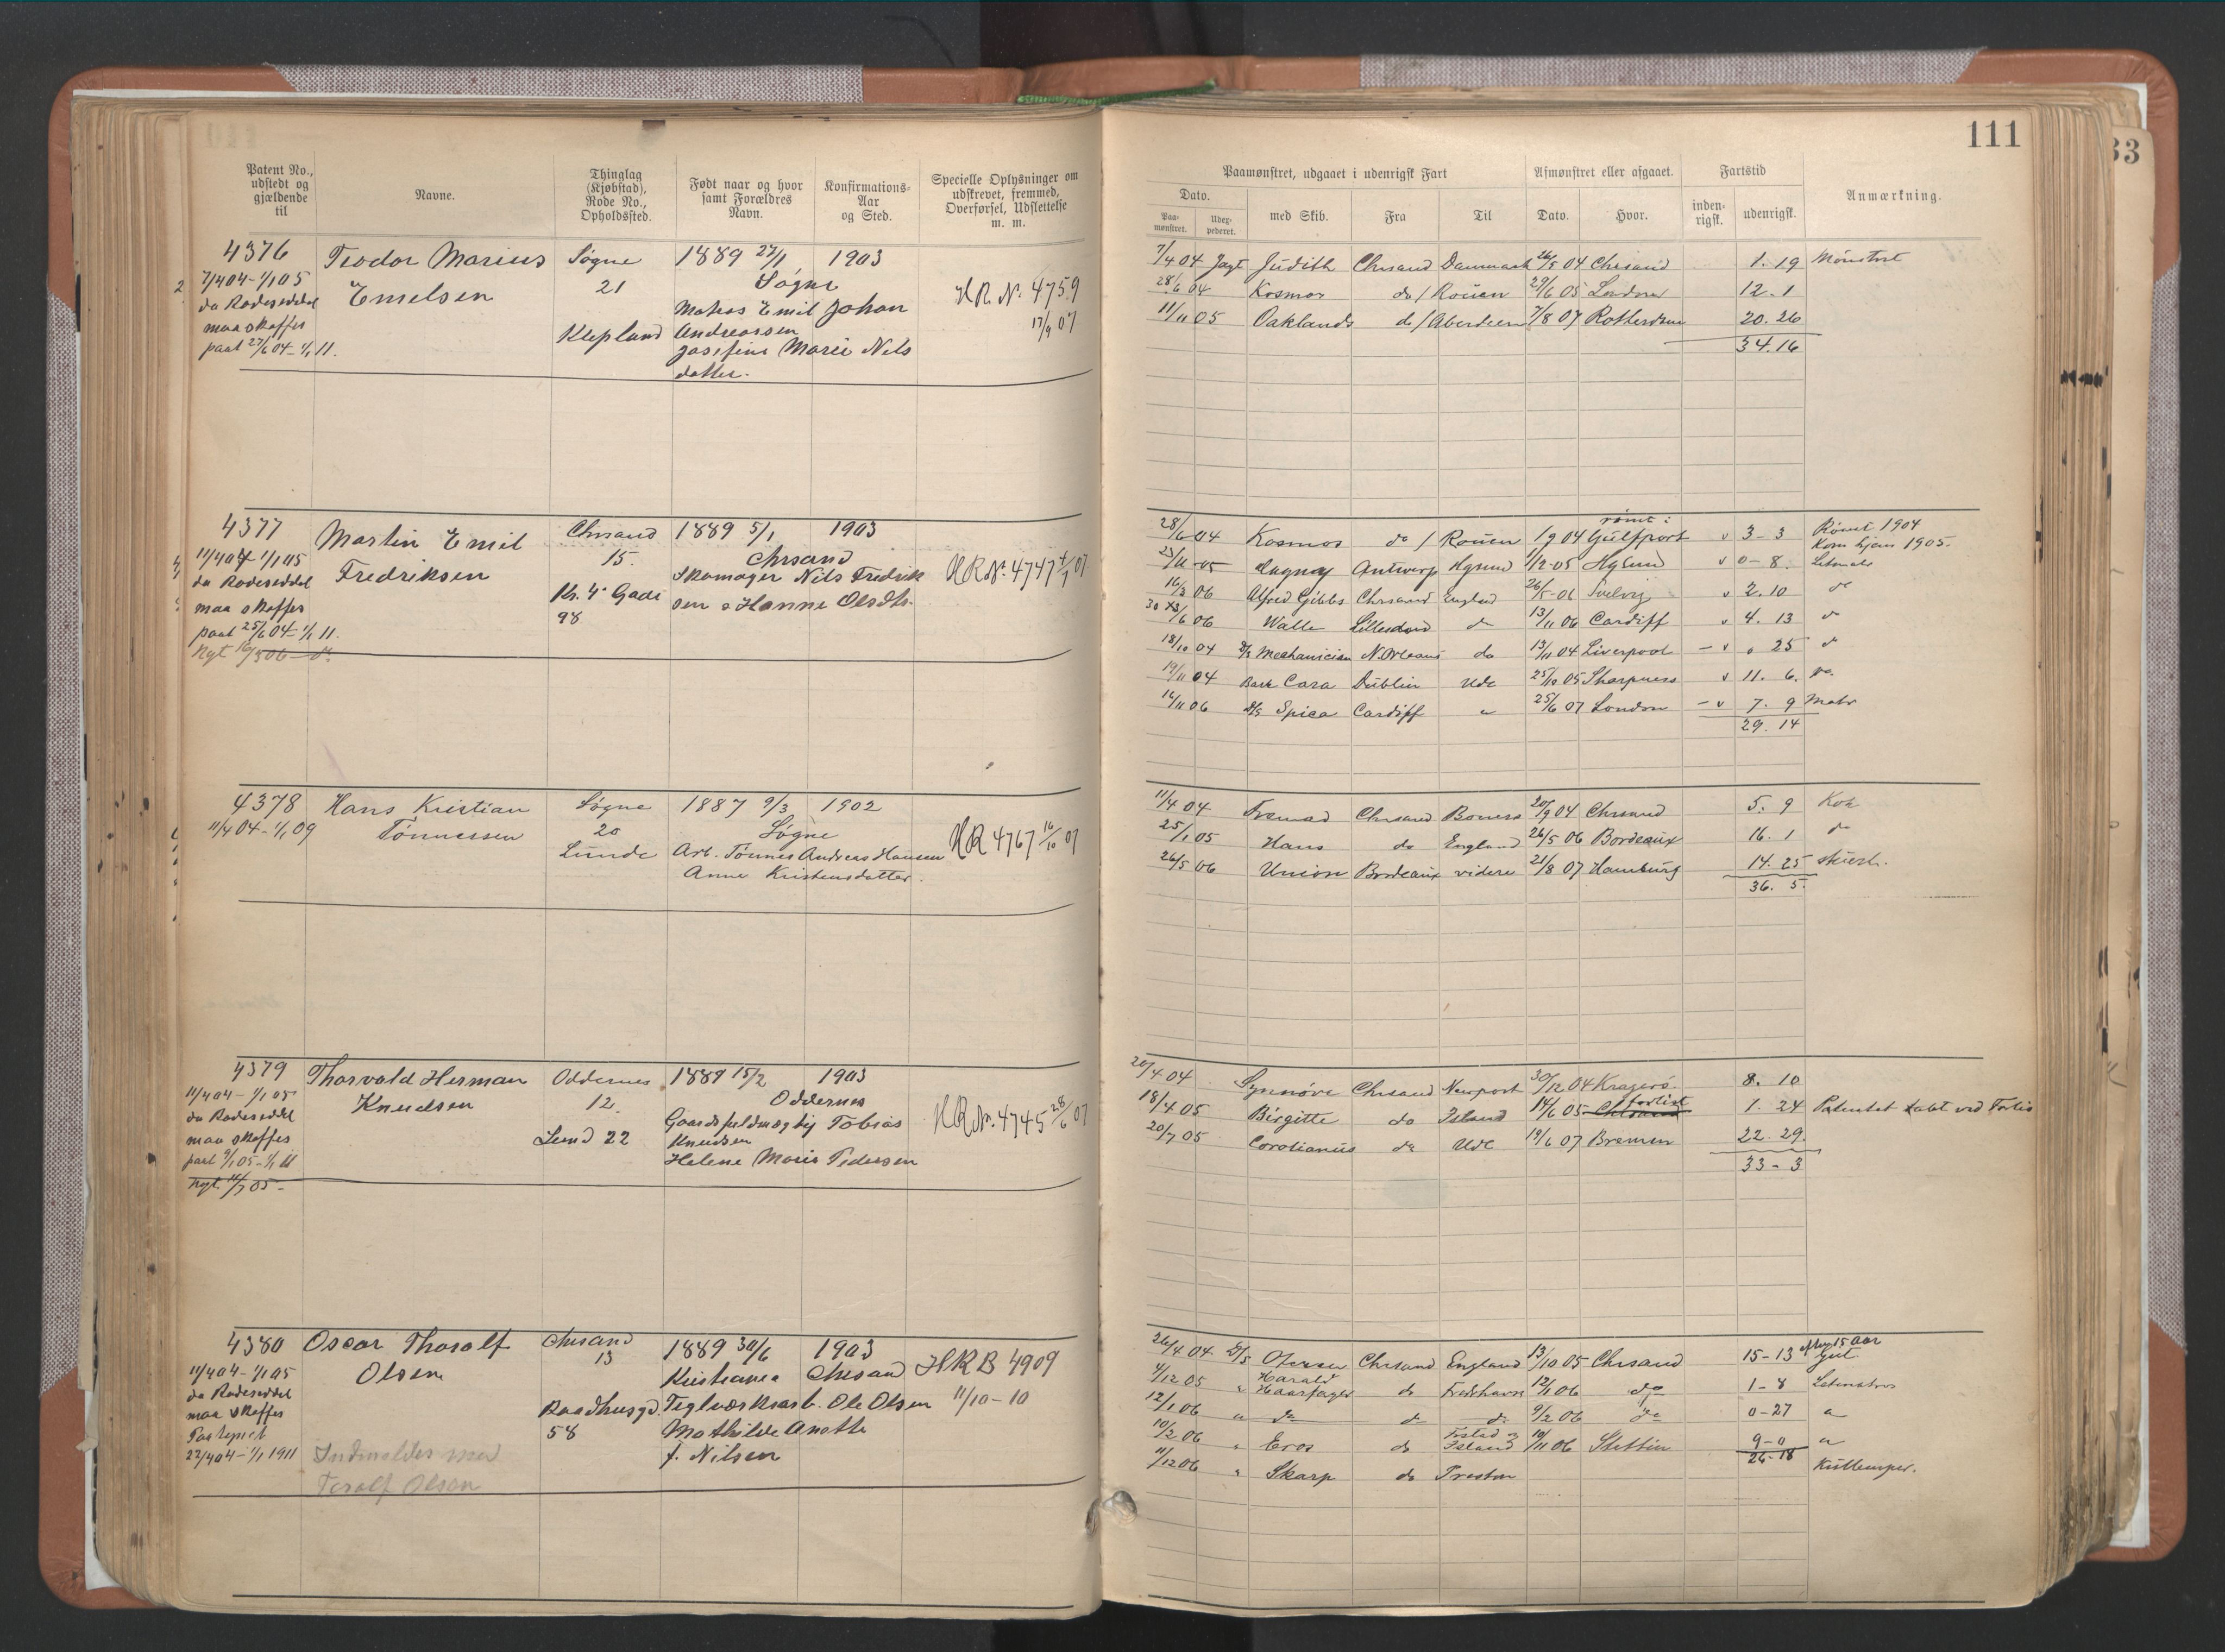 111
33
Patent No., udstedt og gjældende til
Navne.
Thinglag (Kjøbstad), Rode No., Opholdssted.
Født naar og hvor samt Forældres Navn.
Konfirmations-Aar og Sted.
Specielle Oplysninger om udskrevet, fremmed, Overførsel, Udslettelse m. m.
Paamønstret, udgaaet i udenrigsk Fart
Afmønstret eller afgaaet.
Fartstid
Anmærkning.
Dato.
Paa-mønstret.
Udex-pederet.
med Skib.
Fra
Til
Dato.
Hvor.
inden-rigsk.
udenrigsk.
4376 Teodor Marius Søgne 1889 27/1 1903
7/4 04 - 1/1 05 Emelsen 21 Søgne HR No. 4759
da Rodeseddel Matias Emil Johan 17/9 07
maa skaffes Klepland Andreassen
paat 27/6 04 - 1/1 11. Josefine Marie Nils
datter.
7/4 04 Jagt Judith Chrsand Danmark 26/5 04 Chrsand 1. 19
28/6 04 Kosmos do / Rouen 29/6 05 London 12. 1
11/11 05 Oaklands do / Aberdeen 7/8 07 Rotterdam 20. 26
34. 16
4377 Martin Emil Chrsand 1889 5/1 1903
11/4 04 1/1 05 Fredriksen 15. Chrsand HR No. 4747 4/7 07
da Rodeseddel Skomager Nils Fredrik
maa skaffes Kr. 4' Gade sen o Hanne Olsdtr.
paat 25/6 04 - 1/1 11. 98
Nyt 16/3 06 - do
rømt i
28/6 04 Kosmos do / Rouen 1/9 04 Gulfport v 3 - 3 Rømt 1904
Kom hjem 1905.
23/11 05 Antwerp 1/12 05 v 0 - 8.
16/3 06 Alfred Gibbs Chrsand England 26/5 06 v 2. 10 do
6 06 Walle do 13/11 06 Cardiff v 4. 13 do
18/10 04 D/S Mechanician N. Orleans do 13/11 04 Liverpool - v " 25 do
19/11 04 Bark Cara Dublin Ude 25/10 05 Sharpness v 11. 6. do.
14/11 06 D/S Spica Cardiff " 25/6 07 London - v 7. 9 Matr
29. 14
4378 Hans Kristian Søgne 1887 9/3 1902
11/4 04 - 1/1 09 Tønnessen 20 Søgne HR 4767 16/10 07
Lunde Arb. Tønnes Andreas Hansen
Anne Kristensdatter.
11/4 04 Fremad Chrsand Boness 20/9 04 Chrsand 5. 9 Kok
25/1 05 Hans do England 26/5 06 Bordeaux 16. 1 do
26/5 06 Union Bordeaux videre 21/8 07 Hamburg 14. 25
36. 5
4379 Thorvald Herman Oddernes 1889 15/2 1903
11/4 04 - 1/1 05 Knudsen 12. Oddernes HR No. 4745 28/6 07
da Rodeseddel Tobias
maa skaffes Lund 22 Knudsen
paat 9/1 05 - 1/1 11 Helene Marie Pedersen
Nyt 11/7 05 -
20/4 04 Synnøve Chrsand Newport 30/12 04 Kragerø. 8. 10
18/4 05 Birgitte do Island 14/6 05 Chrsand forlist 1. 24 Patentet tabt ved Forlis
20/7 05 do Ude 19/6 07 Bremen 22. 29.
33 - 3
4380 Oscar Tharalf Chrsand 1889 30/6 1903
11/4 04 - 1/1 05 Olsen 13 Kristiania Chrsand HRB 4909
da Rodeseddel Raadhusgd. Teglværksarb. Ole Olsen 11/10 - 10
maa skaffes 58 Mathilde Anette
22/4 04 - 1/1 1911 f. Nilsen
Indmeldes med
Toralf Olsen
26/4 04 D/S Chrsand England 13/10 05 Chrsand 15 - 13 15 Aar Gut
4/12 05 " Harald Haarfager do 12/1 06 do 1 - 8
12/1 06 " do do do 9/2 06 do 0 - 27 "
10/2 06 " Eros do Island 10/11 06 Stettin 9 - 0 "
26 - 18
11/12 06 " Skarp do Preston